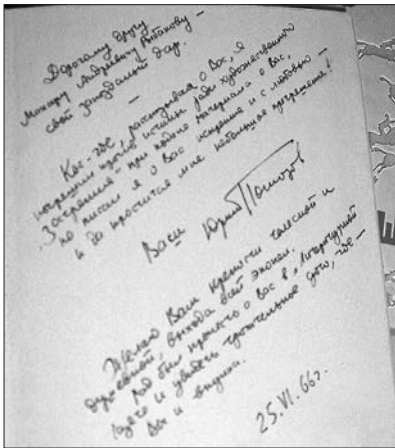 Дорогому другу
Андреевичу Рыбакову —
свой запоздалый дар.
Кое-где, рассказывая о Вас, я
погрешил против истины ради художественного
"заострения" при подаче материала о Вас,
но писал я о Вас искренне и с любовью —
и да простится мне небольшое прегрешение!
Ваш Юрий Помозов
Желаю Вам крепости телесной и
духовной, выхода всей эпопеи.
Рад был прочесть о Вас в "Литературной
газете" и увидеть трогательное фото, где —
Вы и внучка.
25.VI.66г.